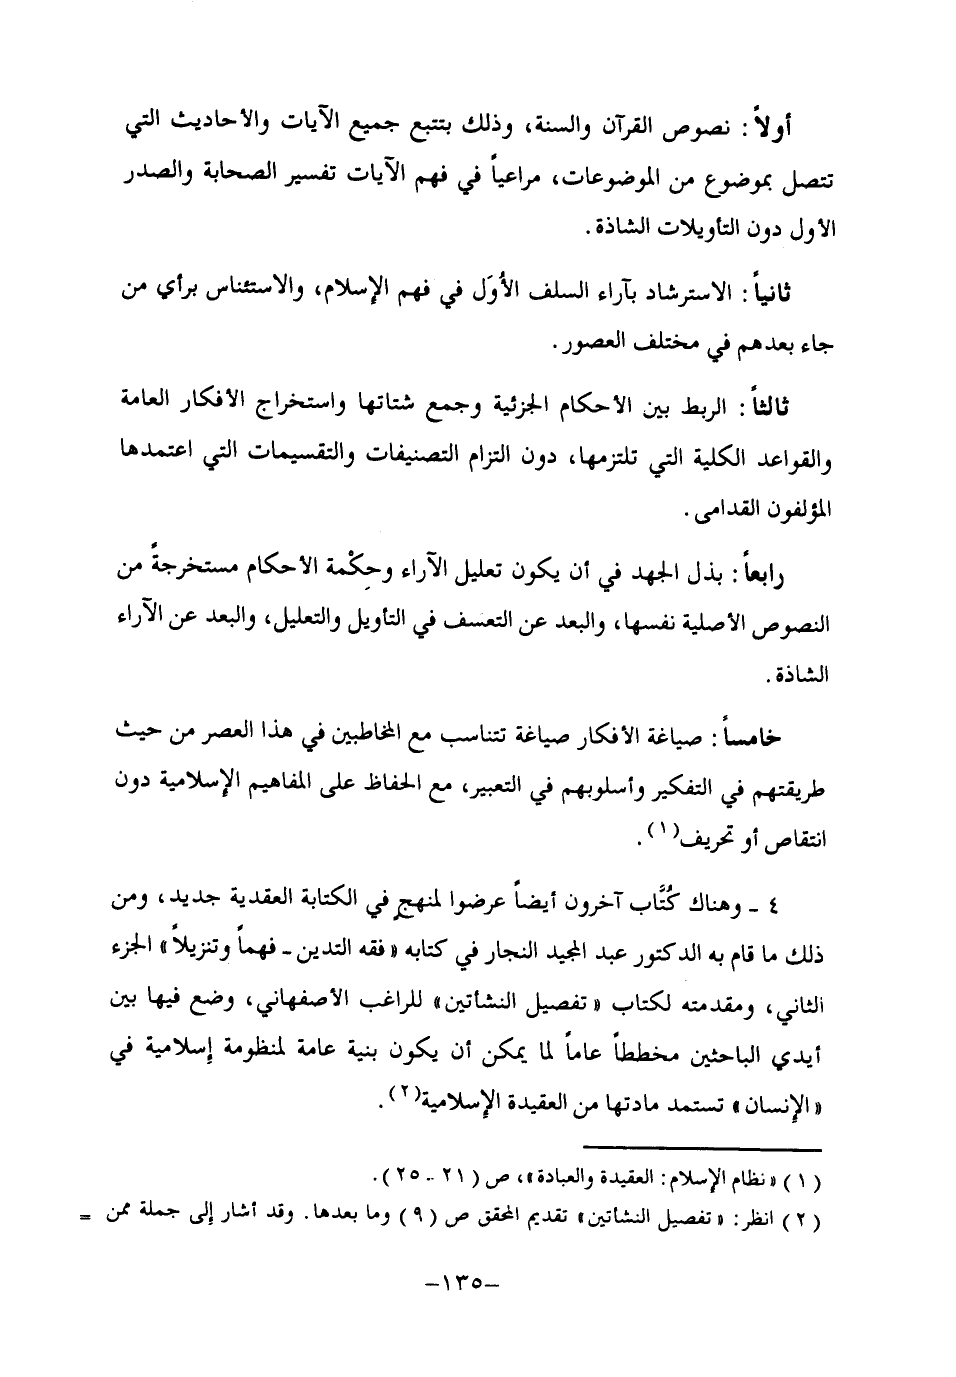 أولاً : نصوص القرآن والسنة، وذلك بتتبع جميع الآيات والأحاديث التي
تتصل بموضوع من الموضوعات، مراعياً في فهم الآيات تفسير الصحابة والصدر
الأول دون التأويلات الشاذة .
ثانياً : الاسترشاد بآراء السلف الأُوَل في فهم الإسلام، والاستئناس برأي من
جاء بعدهم في مختلف العصور .
ثالثاً : الربط بين الأحكام الجزئية وجمع شتاتها واستخراج الأفكار العامة
والقواعد الكلية التي تلتزمها، دون التزام التصنيفات والتقسيمات التي اعتمدها
المؤلفون القدامى .
رابعاً : بذل الجهد في أن يكون تعليل الآراء وحِكْمة الأحكام مستخرجةً من
النصوص الأصلية نفسها، والبعد عن التعسف في التأويل والتعليل، والبعد عن الآراء
الشاذة .
خامساً : صياغة الأفكار صياغة تتناسب مع المخاطبين في هذا العصر من حيث
طريقتهم في التفكير وأسلوبهم في التعبير، مع الحفاظ على المفاهيم الإسلامية دون
انتقاص أو تحريف(١) .
٤ ـ وهناك كُتَّاب آخرون أيضاً عرضوا لمنهجٍ في الكتابة العقدية جديد، ومن
ذلك ما قام به الدكتور عبد المجيد النجار في كتابه « فقه التدين ـ فهماً وتنزيلاً » الجزء
الثاني، ومقدمته لكتاب « تفصيل النشأتين » للراغب الأصفهاني، وضع فيها بين
أيدي الباحثين مخططاً عاماً لما يمكن أن يكون بنية عامة لمنظومة إسلامية في
« الإنسان » تستمد مادتها من العقيدة الإسلامية(٢) .
(١) « نظام الإسلام : العقيدة والعبادة »، ص (٢١ ـ ٢٥) .
(٢) انظر : « تفصيل النشأتين » تقديم المحقق ص (٩) وما بعدها . وقد أشار إلى جملة ممن =
–١٣٥–